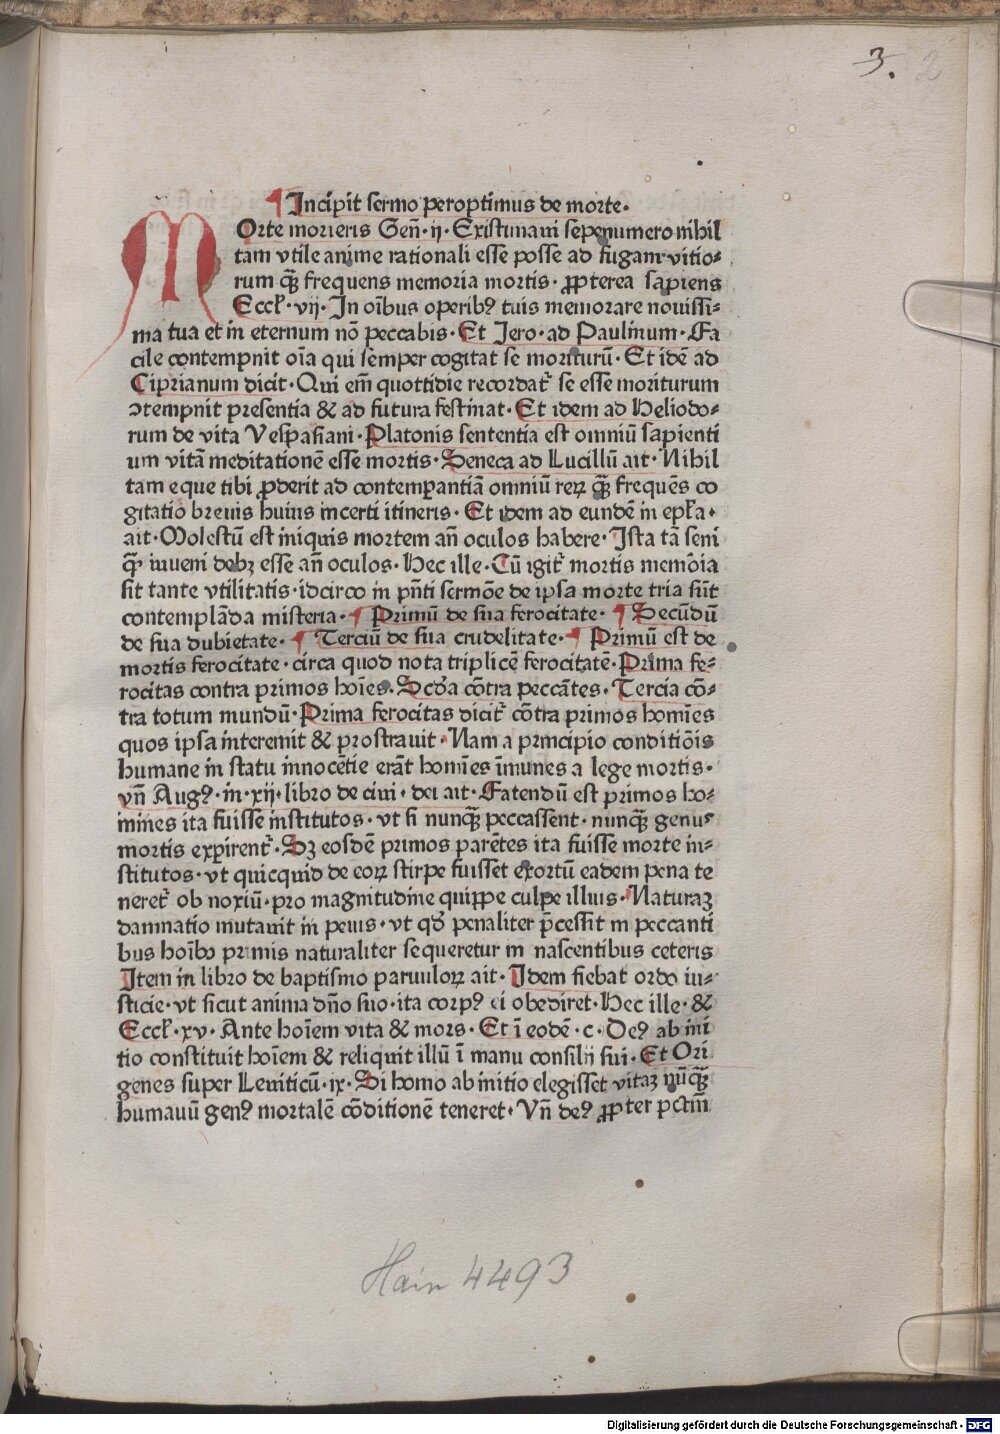 3. 2
¶ Incipit sermo peroptimus de morte·
MOrte morieris Geñ·ij·Existimaui sepenumero nihil
tam vtile anime rationali esse posse ad fugam vitio⸗
rum q̃ꝫ frequens memoria mortis·ꝓpterea sapiens
Eccl̃·vij·In oĩbus operibꝰ tuis memorare nouissi⸗
ma tua et in eternum nõ peccabis·Et Jero·ad Paulinum·Fa
cile contempnit oĩa qui semper cogitat se moriturũ·Et idẽ ad
Ciprianum dicit·Qui em̃ quottidie recordat᷑ se esse moriturum
ↄtempnit presentia & ad futura festinat·Et idem ad Heliodo⸗
rum de vita Vespasiani·Platonis sententia est omniũ sapienti
um vitã meditationẽ esse mortis·Seneca ad Lucillũ ait·Nihil
tam eque tibi ꝓderit ad contemperantiã omniũ reꝝ q̃ꝫ frequẽs co
gitatio breuis huius incerti itineris·Et idem ad eundẽ in epl̃a·
ait·Molestũ est iniquis mortem añ oculos habere·Ista tã seni
q̃ꝫ iuueni debꝫ esse añ oculos·Hec ille·Cũ igit᷑ mortis memõia
sit tante vtilitatis·idcirco in pñti sermõe de ipsa morte tria sũt
contemplãda misteria·¶ Primũ de sua ferocitate·¶ Secũdũ
de sua dubietate·¶ Terciũ de sua crudelitate·¶ Primũ est de
mortis ferocitate·circa quod nota triplicẽ ferocitatẽ·Prima fe⸗
rocitas contra primos hoĩes·Scd̃a cõtra peccãtes·Tercia cõ⸗
tra totum mundũ·Prima ferocitas dicit᷑ cõtra primos homĩes
quos ipsa interemit & prostrauit·Nam a principio conditiõis
humane in statu innocẽtie erãt homĩes ĩmunes a lege mortis·
vñ Augꝰ·in·xij·libro de ciui·dei ait·Fatendũ est primos ho⸗
mines ita fuisse institutos·vt si nunq̃ꝫ peccassent·nunq̃ꝫ genus
mortis expirent᷑·Sꝫ eosdẽ primos parẽtes ita fuisse morte in⸗
stitutos·vt quicquid de eoꝝ stirpe fuisset exortũ eadem pena te
neret᷑ ob noxiũ·pro magnitudine quippe culpe illius·Naturaꝫ
damnatio mutauit in peius·vt qd̃ penaliter p̃cessit in peccanti
bus hoĩbꝰ primis naturaliter sequeretur in nascentibus ceteris
Item in libro de baptismo paruuloꝝ ait·Idem fiebat ordo iu⸗
sticie·vt sicut anima dño suo·ita corpꝰ ei obediret·Hec ille·&
Eccl̃·xv·Ante hoĩem vita & mors·Et ĩ eodẽ·c·Deꝰ ab ini
tio constituit hoĩem & reliquit illũ ĩ manu consilij sui·Et Ori
genes super Leuiticũ·ix·Si homo ab initio elegisset vitaꝫ nũq̃ꝫ
humauũ genꝰ mortalẽ cõditionẽ teneret·Vñ deꝰ ꝓpter pctm̃
Hain 4493
Digitalisierung gefördert durch die Deutsche Forschungsgemeinschaft - DFG